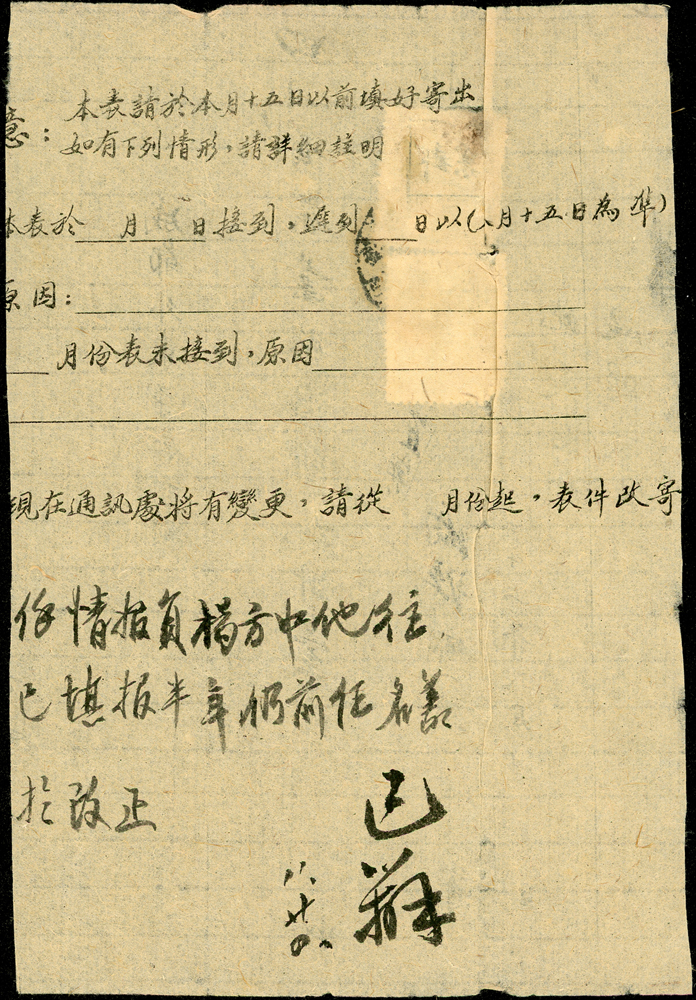 意：本表請於本月十五日以前填好寄出
如有下列情形，請詳細註明
本表於 月 日接到，遲到 日以(八月十五日為準)
原因：
月份表未接到，原因
現在通訊處將有變更，請從 月份起，表件改寄
情报員楊方中他往
已填报半年仍前任名義
於改正